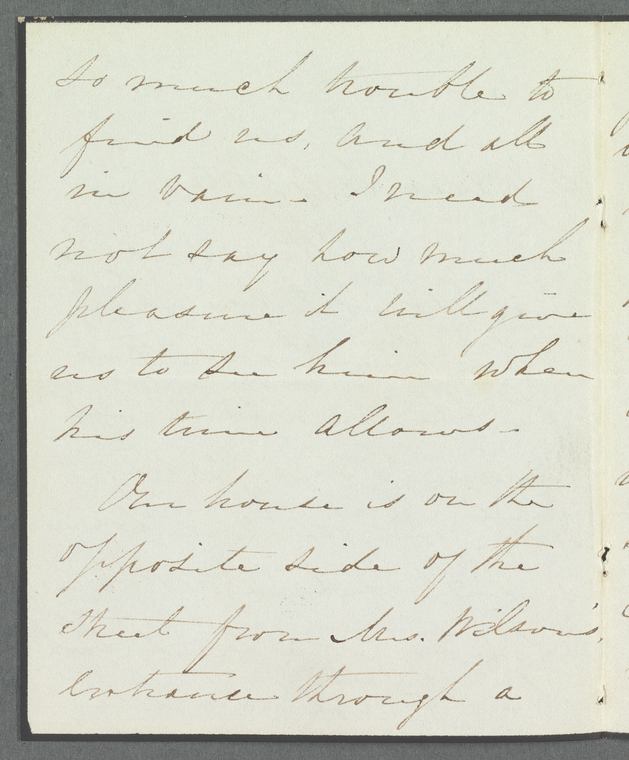 so much trouble to
find us, and all
in vain - I need
not say how much
pleasure it will give
us to see him when
his time allows -
Our house is on the
opposite side of the
street from Mrs. Wilson's,
entrance through a